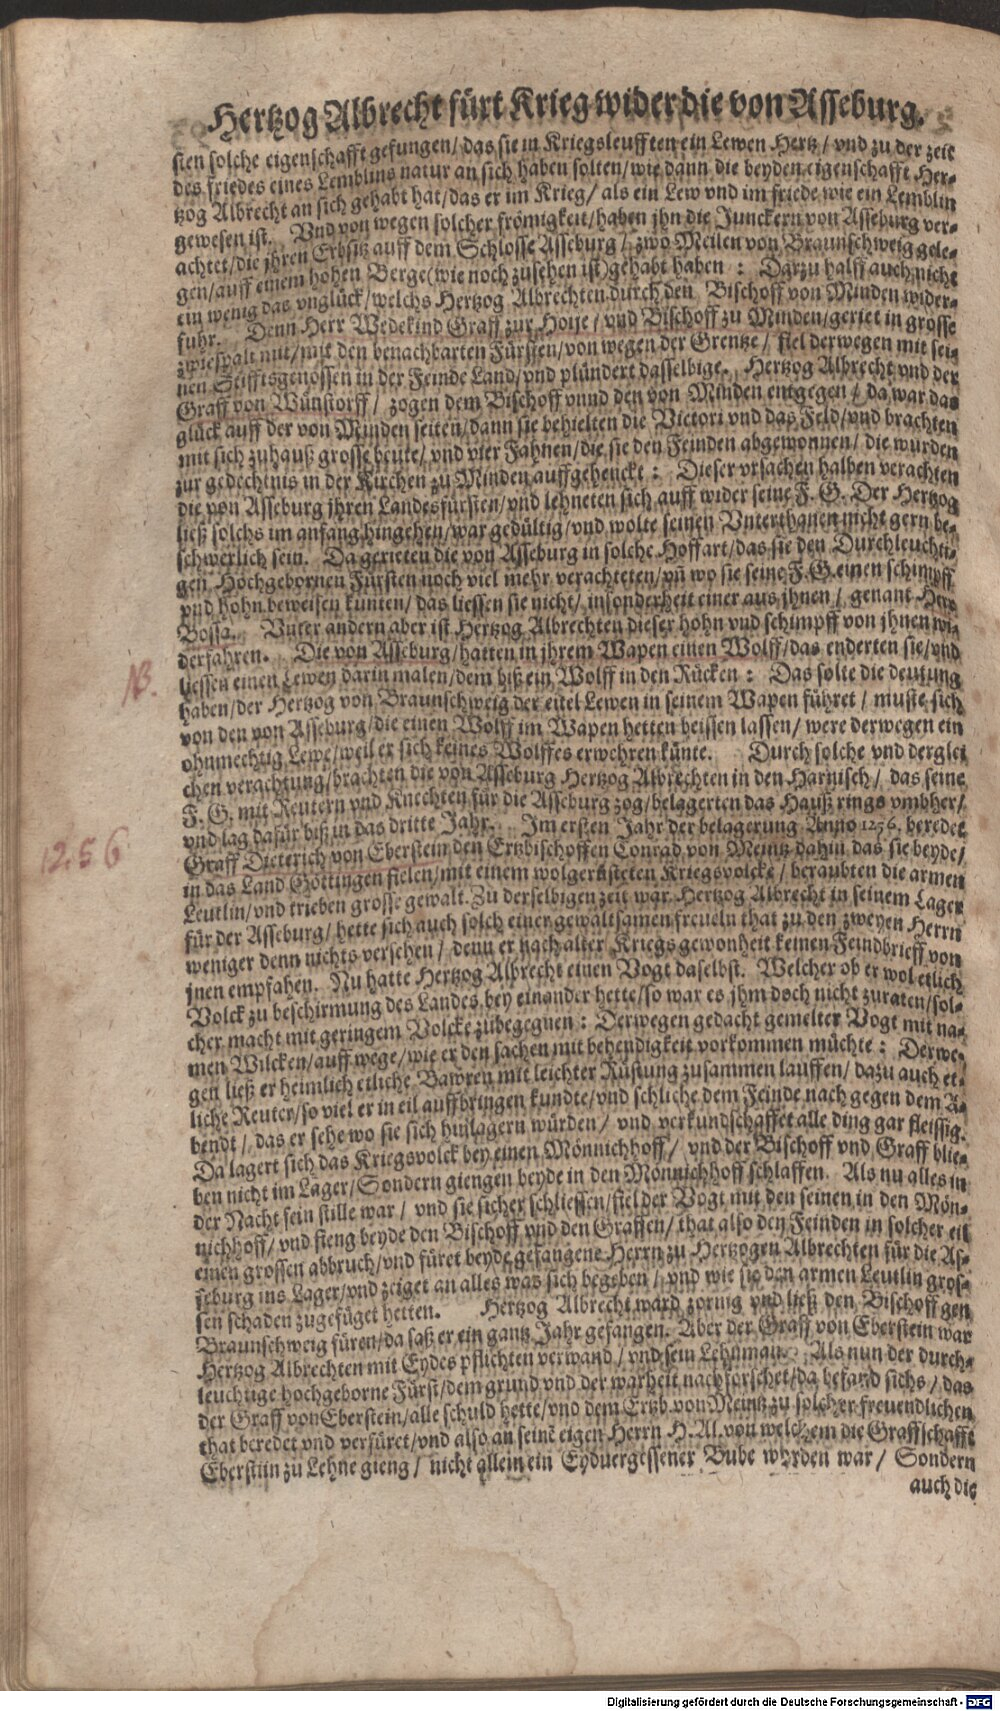 Hertzog Albrecht fürt Krieg wider die von Asseburg.
sten solche eigenschafft gesungen/ das sie in Kriegsleufften ein Lewen Hertz/ vnd zu der zeit
des friedes eines Lemblins natur an sich haben solten/ wie dann die beyden eigenschafft Her-
tzog Albrecht an sich gehabt hat/ das er im Krieg/ als ein Lew vnd im friede wie ein Lemblin
gewesen ist. Vnd von wegen solcher frömigkeit/ haben jhn die Junckern von Asseburg ver-
achtet/ die jhren Erbsitz auff dem Schlosse Asseburg/ zwo Meilen von Braunschweig gele-
gen/ auff einem hohen Berge (wie noch zusehen ist) gehabt haben : Darzu halff auch nicht
ein wenig das vnglück/ welchs Hertzog Albrechten durch den Bischoff von Minden wider-
fuhr. Denn Herr Wedekind Graff zur Hoije/ vnd Bischoff zu Minden/ geriet in grosse
zwiespalt mit/ mit den benachbarten Fürsten/ von wegen der Grentze/ fiel derwegen mit sei-
nen Stifftsgenossen in der Feinde Land/ vnd plündert dasselbige. Hertzog Albrecht vnd der
Graff von Wünstorff/ zogen dem Bischoff vnnd den von Minden entgegen/ da war das
glück auff der von Minden seiten/ dann sie behielten die Victori vnd das Feld/ vnd brachten
mit sich zuhauß grosse beute/ vnd vier Fahnen/ die sie den Feinden abgewonnen/ die wurden
zur gedechtnis in der Kirchen zu Minden auffgehenckt : Dieser vrsachen halben verachten
die von Asseburg jhren Landesfürsten/ vnd lehneten sich auff wider seine F. G. Der Hertzog
ließ solchs im anfang hingehen/ war gedültig/ vnd wolte seinen Vnterthanen nicht gern be-
schwerlich sein. Da gerieten die von Asseburg in solche Hoffart/ das sie den Durchleuchti-
gen Hochgebornen Fürsten noch viel mehr verachteten/ vñ wo sie seine F. G. einen schimpff
vnd hohn beweisen kunten/ das liessen sie nicht/ insonderheit einer aus jhnen/ genant Herr
Bossa. Vnter andern aber ist Hertzog Albrechten dieser hohn vnd schimpff von jhnen wi-
derfahren. Die von Asseburg/ hatten in jhrem Wapen einen Wolff/ das enderten sie/ vnd
liessen einen Lewen darin malen/ dem biß ein Wolff in den Rücken : Das solte die deutung
NB.
haben/ der Hertzog von Braunschweig der eitel Lewen in seinem Wapen führet/ muste sich
von den von Asseburg/ die einen Wolff im Wapen hetten beissen lassen/ were derwegen ein
ohnmechtig Lewe/ weil er sich keines Wolffes erwehren künte. Durch solche vnd derglei
chen verachtung/ brachten die von Asseburg Hertzog Albrechten in den Harnisch/ das seine
F. G. mit Reutern vnd Knechten für die Asseburg zog/ belagerten das Hauß rings vmbher/
vnd lag dafür biß in das dritte Jahr. Im ersten Jahr der belagerung Anno 1256. beredet
1256
Graff Dieterich von Eberstein den Ertzbischoffen Conrad von Meintz dahin das sie beyde/
in das Land Göttingen fielen/ mit einem wolgerüsteten Kriegsvolcke/ beraubten die armen
Leutlin/ vnd trieben grosse gewalt. Zu derselbigen zeit war Hertzog Albrecht in seinem Lager
für der Asseburg/ hette sich auch solch einer gewaltsamen freueln that zu den zweyen Herrn
weniger denn nichts versehen/ denn er nach alter Kriegs gewonheit keinen Feindbrieff von
jnen empfahen. Nu hatte Hertzog Albrecht einen Vogt daselbst. Welcher ob er wol etlich
Volck zu beschirmung des Landes bey einander hette/ so war es jhm doch nicht zuraten/ sol-
cher macht mit geringem Volcke zubegegnen : Derwegen gedacht gemelter Vogt mit na-
men Wilcken/ auff wege/ wie er den sachen mit behendigkeit vorkommen müchte : Derwe-
gen ließ er heimlich etliche Bawren mit leichter Rüstung zusammen lauffen/ dazu auch et-
liche Reuter/ so viel er in eil auffbringen kundte/ vnd schliche dem Feinde nach gegen dem A-
bendt/ das er sehe wo sie sich hinlagern würden/ vnd verkundschaffet alle ding gar fleissig.
Da lagert sich das Kriegsvolck bey einen Mönnichhoff/ vnd der Bischoff vnd Graff blie-
ben nicht im Läger/ Sondern giengen beyde in den Mönnichhoff schlaffen. Als nu alles in
der Nacht fein stille war/ vnd sie sicher schlieffen/ fiel der Vogt mit den seinen in den Mön-
nichhoff/ vnd fieng beyde den Bischoff vnd den Graffen/ that also den Feinden in solcher eil
einen grossen abbruch/ vnd füret beyde gefangene Herrn zu Hertzogen Albrechten für die As-
seburg ins Lager/ vnd zeiget an alles was sich begeben/ vnd wie sie den armen Leutlin gros-
sen schaden zugefüget hetten. Hertzog Albrecht ward zornig vnd ließ den Bischoff gen
Braunschweig füren/ da saß er ein gantz Jahr gefangen. Aber der Graff von Eberstein war
Hertzog Albrechten mit Eydes pflichten verwand/ vnd sein Lehnman. Als nun der durch-
leuchtige hochgeborne Fürst/ dem grund vnd der warheit nachforschet/ da befand sichs/ das
der Graff von Eberstein/ alle schuld hette/ vnd dem Ertzb. von Meintz zu solcher freuendlichen
that beredet vnd verfüret/ vnd also an seinē eigen Herrn H. Al. von welchem die Graffschafft
Eberstiin zu Lehne gieng/ nicht allein ein Eyduergessener Bube wurden war/ Sondern
auch die
Digitalisierung gefördert durch die Deutsche Forschungsgemeinschaft - DFG